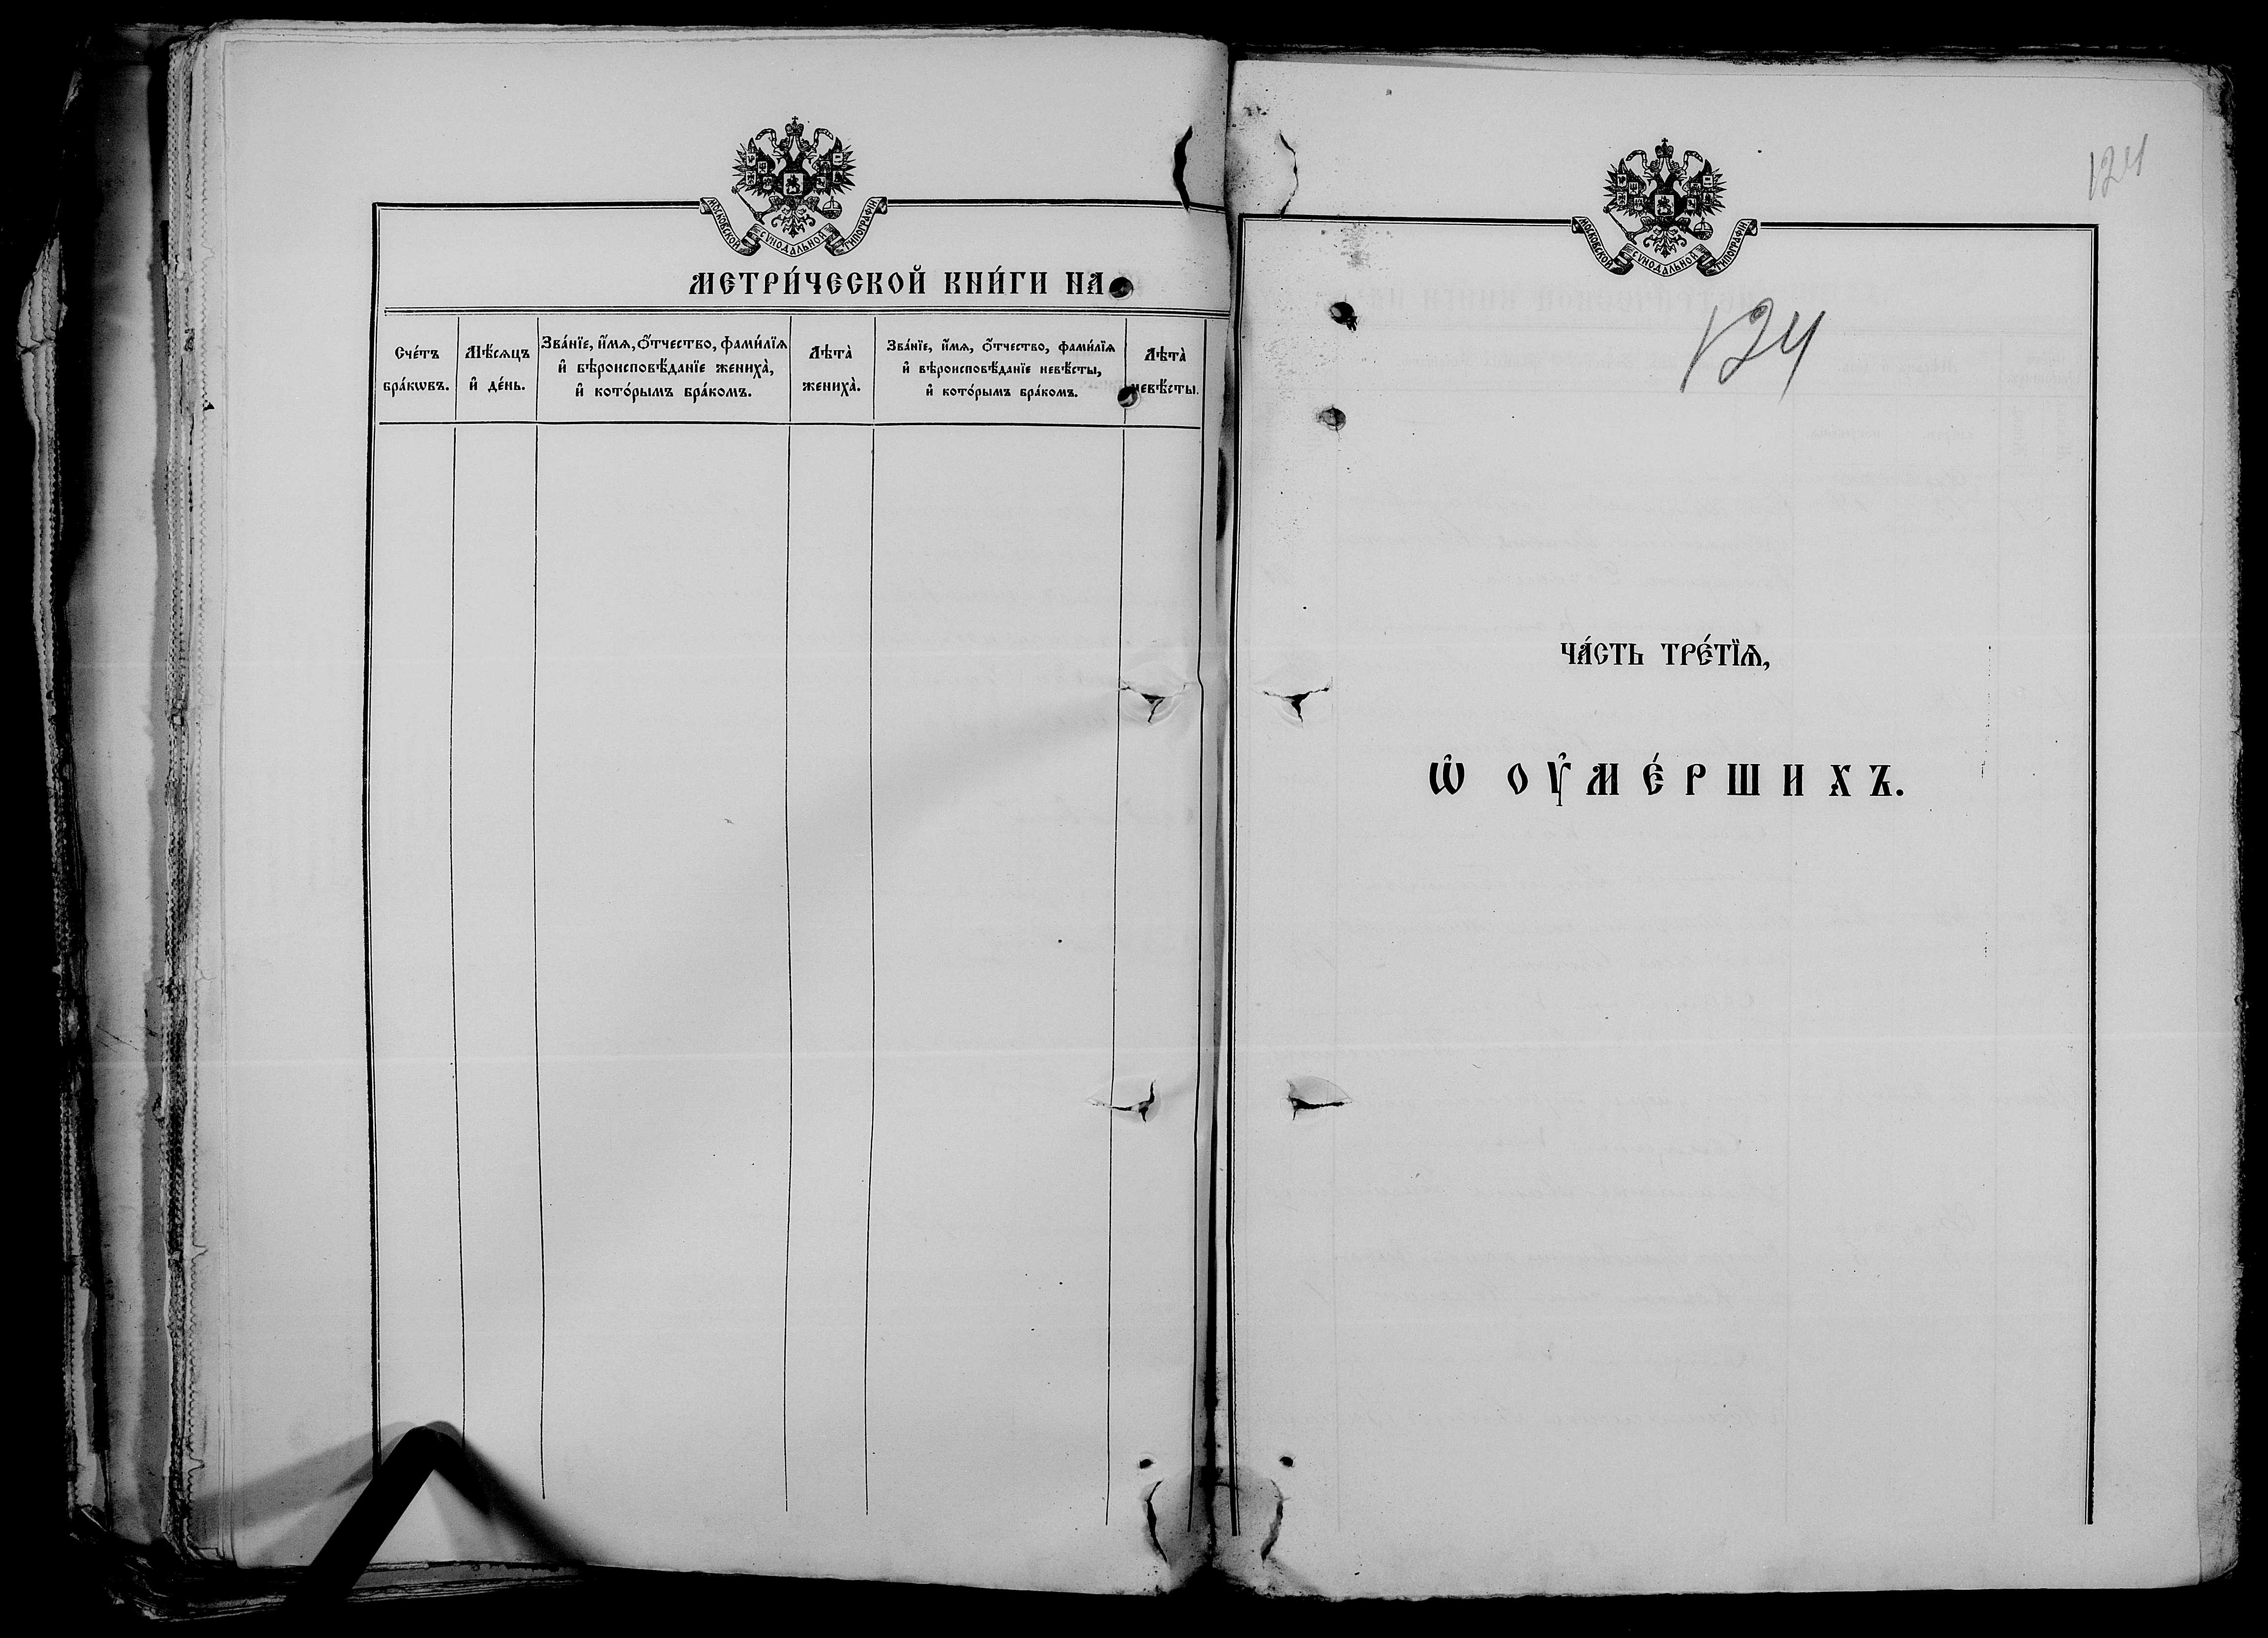 МОСКОВСКОЙ СѴНОДАЛЬНОЙ ТИПОГРАФІИ
МЕТРИ́ЧЕСКОЙ КНИ́ГИ НА
Сче́тъ
бра́кѡвъ.
Мѣ́сѧцъ
и҆ де́нь.
Зва́нїе, и҆́мѧ, ѻ҆́тчество, фами́лїѧ
и҆ вѣроисповѣ́данїе жениха̀,
и҆ кото́рымъ бра́комъ.
Лѣта̀
жениха̀.
Зва́нїе, и҆́мѧ, ѻ҆́тчество, фами́лїѧ
и҆ вѣроисповѣ́данїе невѣ́сты,
и҆ кото́рымъ бра́комъ.
Лѣта̀
невѣ́сты.
124
МОСКОВСКОЙ СѴНОДАЛЬНОЙ ТИПОГРАФІИ
124
ЧА́СТЬ ТРЕ́ТЇѦ,
Ѡ҆ ОУ҆МЕ́РШИХЪ.